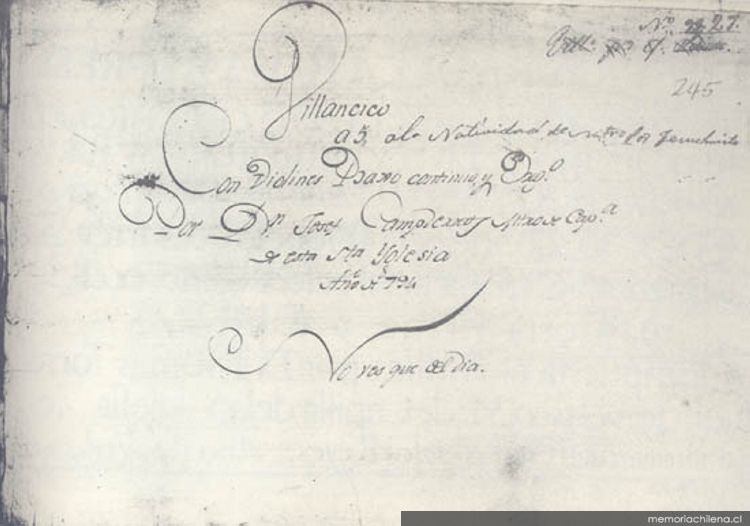 Nº 27.
245
Villancico
a 5, a la Natividad de Ntro Sor Jesuchristo
Con Violines Baxo continuo, y Org.º
Por Dn Josef Campderros Mtro de Cap.a
de esta Sta Yglesia
Año de 794
No ves que el dia.
memoriachilena.cl